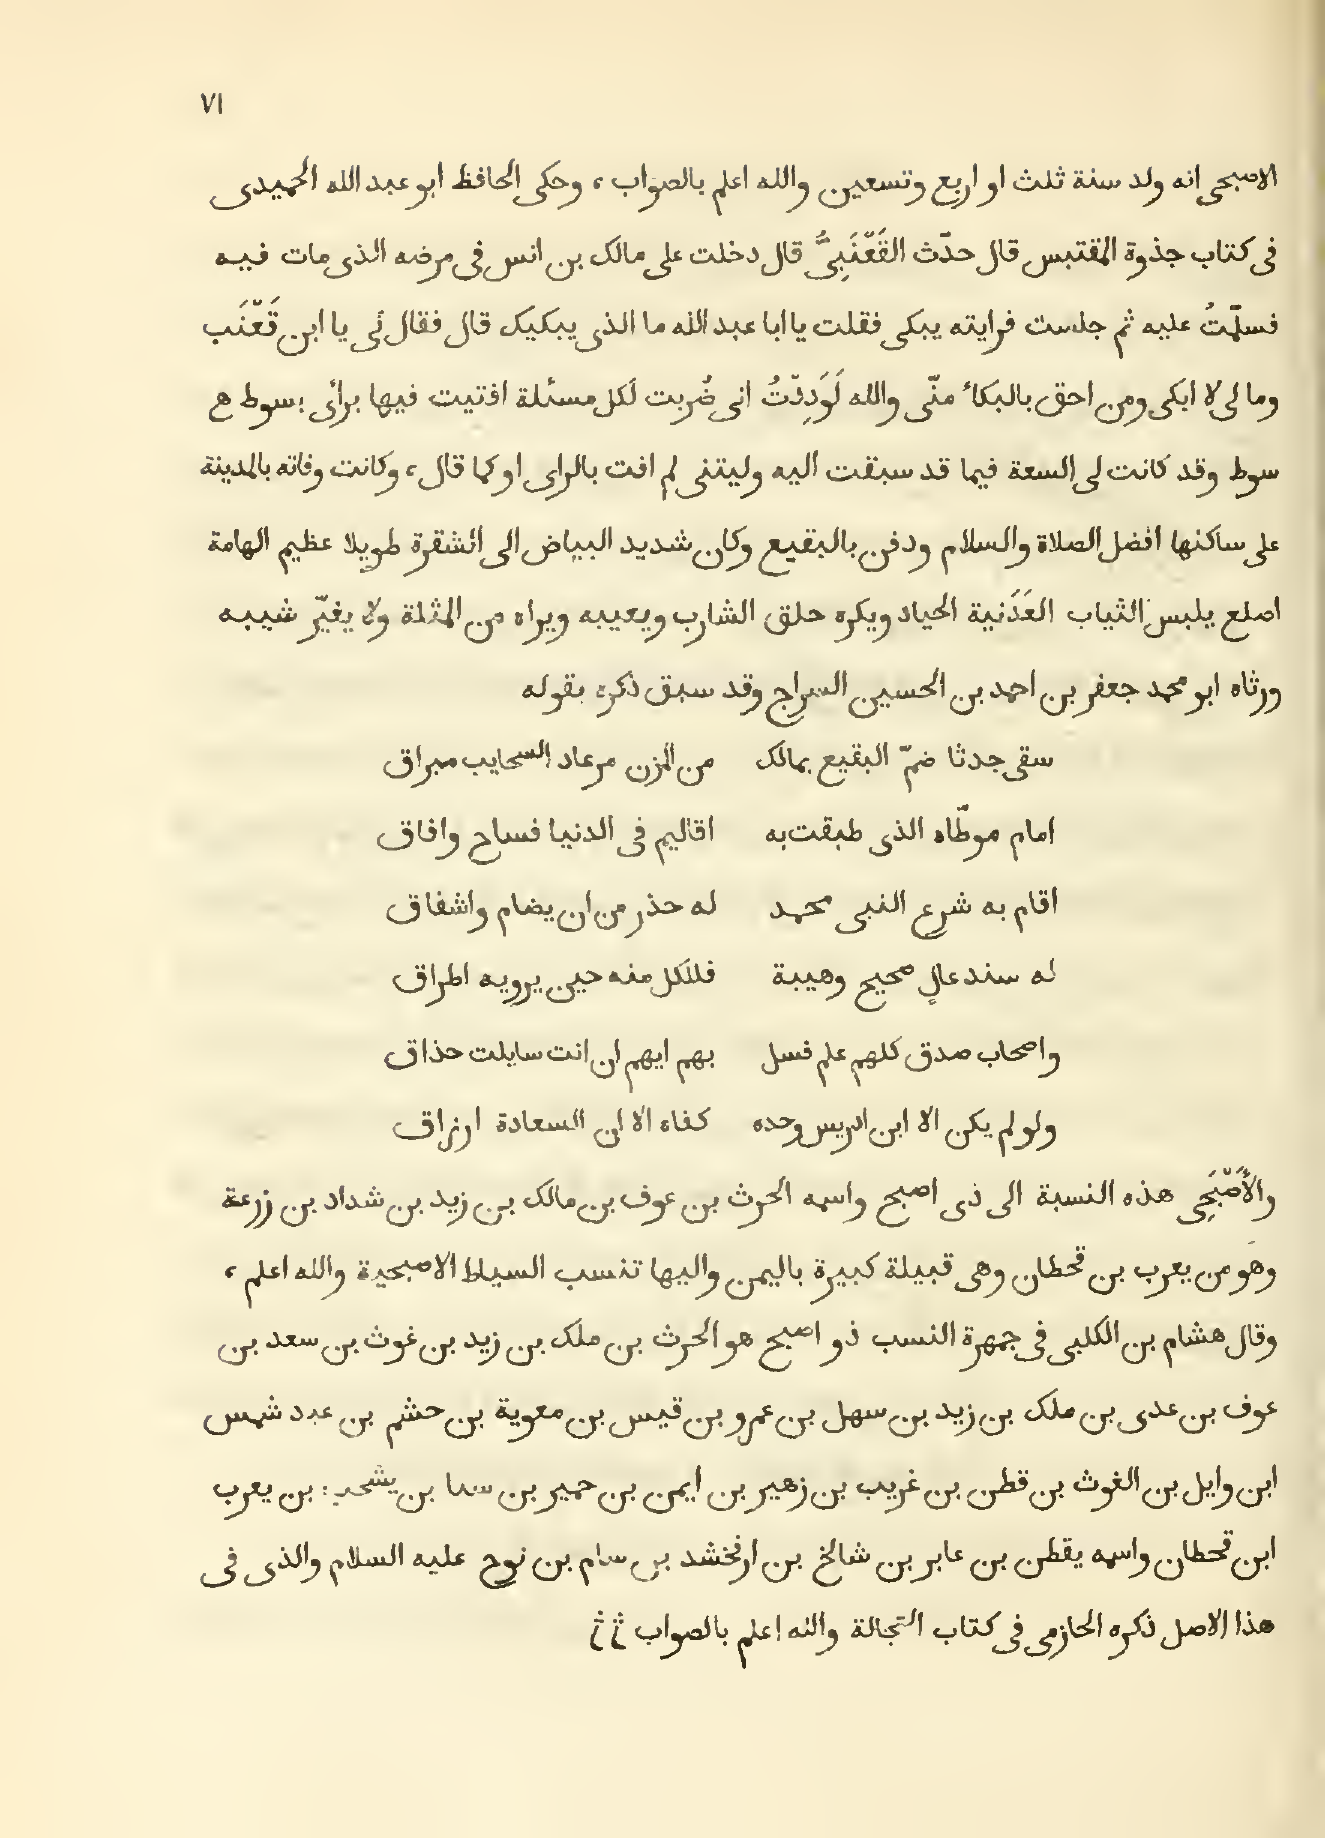 ٧١
الاصبحى انه ولد سنة ثلث او اربع وتسعين والله اعلم بالصواب ، وحكى الحافظ ابو عبد الله الحميدى
فى كتاب جذوة المقتبس قال حدّث القَعْنَبِىُّ قال دخلت على مالك بن انس فى مرضه الذى مات فيه
فسلّمتُ عليه ثم جلست فرايته يبكى فقلت يا ابا عبد الله ما الذى يبكيك قال فقال لى يا ابن قَعْنَب
وما لى لا ابكى ومن احق بالبكاء منّى والله لَوَدِدْتُ انى ضُربت لكل مسئلة افتيت فيها برأى بسوط
سوط وقد كانت لى السعة فيما قد سبقت اليه وليتنى لم افت بالراى او كما قال ، وكانت وفاته بالمدينة
على ساكنها افضل الصلاة والسلام ودفن بالبقيع وكان شديد البياض الى الشقرة طويلا عظيم الهامة
اصلع يلبس الثياب العَدَنية الجياد ويكره حلق الشارب ويعيبه ويراه من المثلة ولا يغيّر شيبه
ورثاه ابو محمد جعفر بن احمد بن الحسين السراج وقد سبق ذكره بقوله
سقى جدثا ضمّ البقيع بمالك من المزن مرعاد السحايب مبراق
امام موطّاه الذى طبقت به اقاليم فى الدنيا فساح وافاق
اقام به شرع النبى محمد له حذر من ان يضام واشفاق
له سند عالٍ صحيح وهيبة فللكل منه حين يرويه اطراق
واصحاب صدق كلهم علم فسل بهم ايهم ان انت سايلت حذاق
ولو لم يكن الا ابن ادريس وحده كفاه الا ان السعادة ارزاق
والأَصْبَحِى هذه النسبة الى ذى اصبح واسمه الحرث بن عوف بن مالك بن زيد بن شداد بن زرعة
وهو من يعرب بن قحطان وهى قبيلة كبيرة باليمن واليها تنسب السياط الاصبحية والله اعلم ،
وقال هشام بن الكلبى فى جمهرة النسب ذو اصبح هو الحرث بن ملك بن زيد بن غوث بن سعد بن
عوف بن عدى بن ملك بن زيد بن سهل بن عمرو بن قيس بن معوية بن حشم بن عبد شمس
ابن وايل بن الغوث بن قطن بن غريب بن زهير بن ايمن بن حمير بن سبا بن يشجب بن يعرب
ابن قحطان واسمه يقطن بن عابر بن شالخ بن ارفخشد بن سام بن نوح عليه السلام والذى فى
هذا الاصل ذكره الحازمى فى كتاب العجالة والله اعلم بالصواب